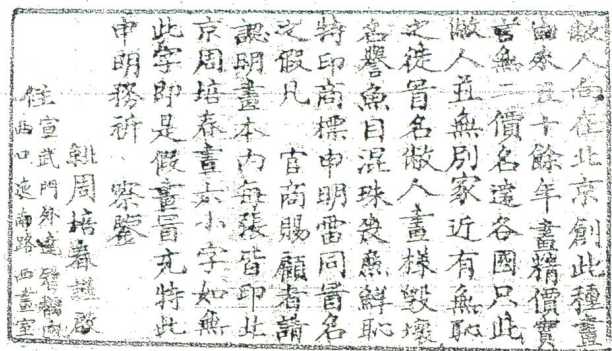 敝人向在北京創此種畫
由來五十餘年畫精價實
言無二價名遠各國只此
敝人並無別家近有無恥
之徒冒名敝人畫樣毀壞
名譽魚目混珠喪盡鮮恥
特印商標申明雷同冒名
之假凡 官商賜顧者請
認明畫本內每張皆印北
京周培春畫六小字如無
此字即是假畫冒充特此
申明務祈 察鑒
周培春謹啟
住宣武門外達智橋內
西口 路西畫室